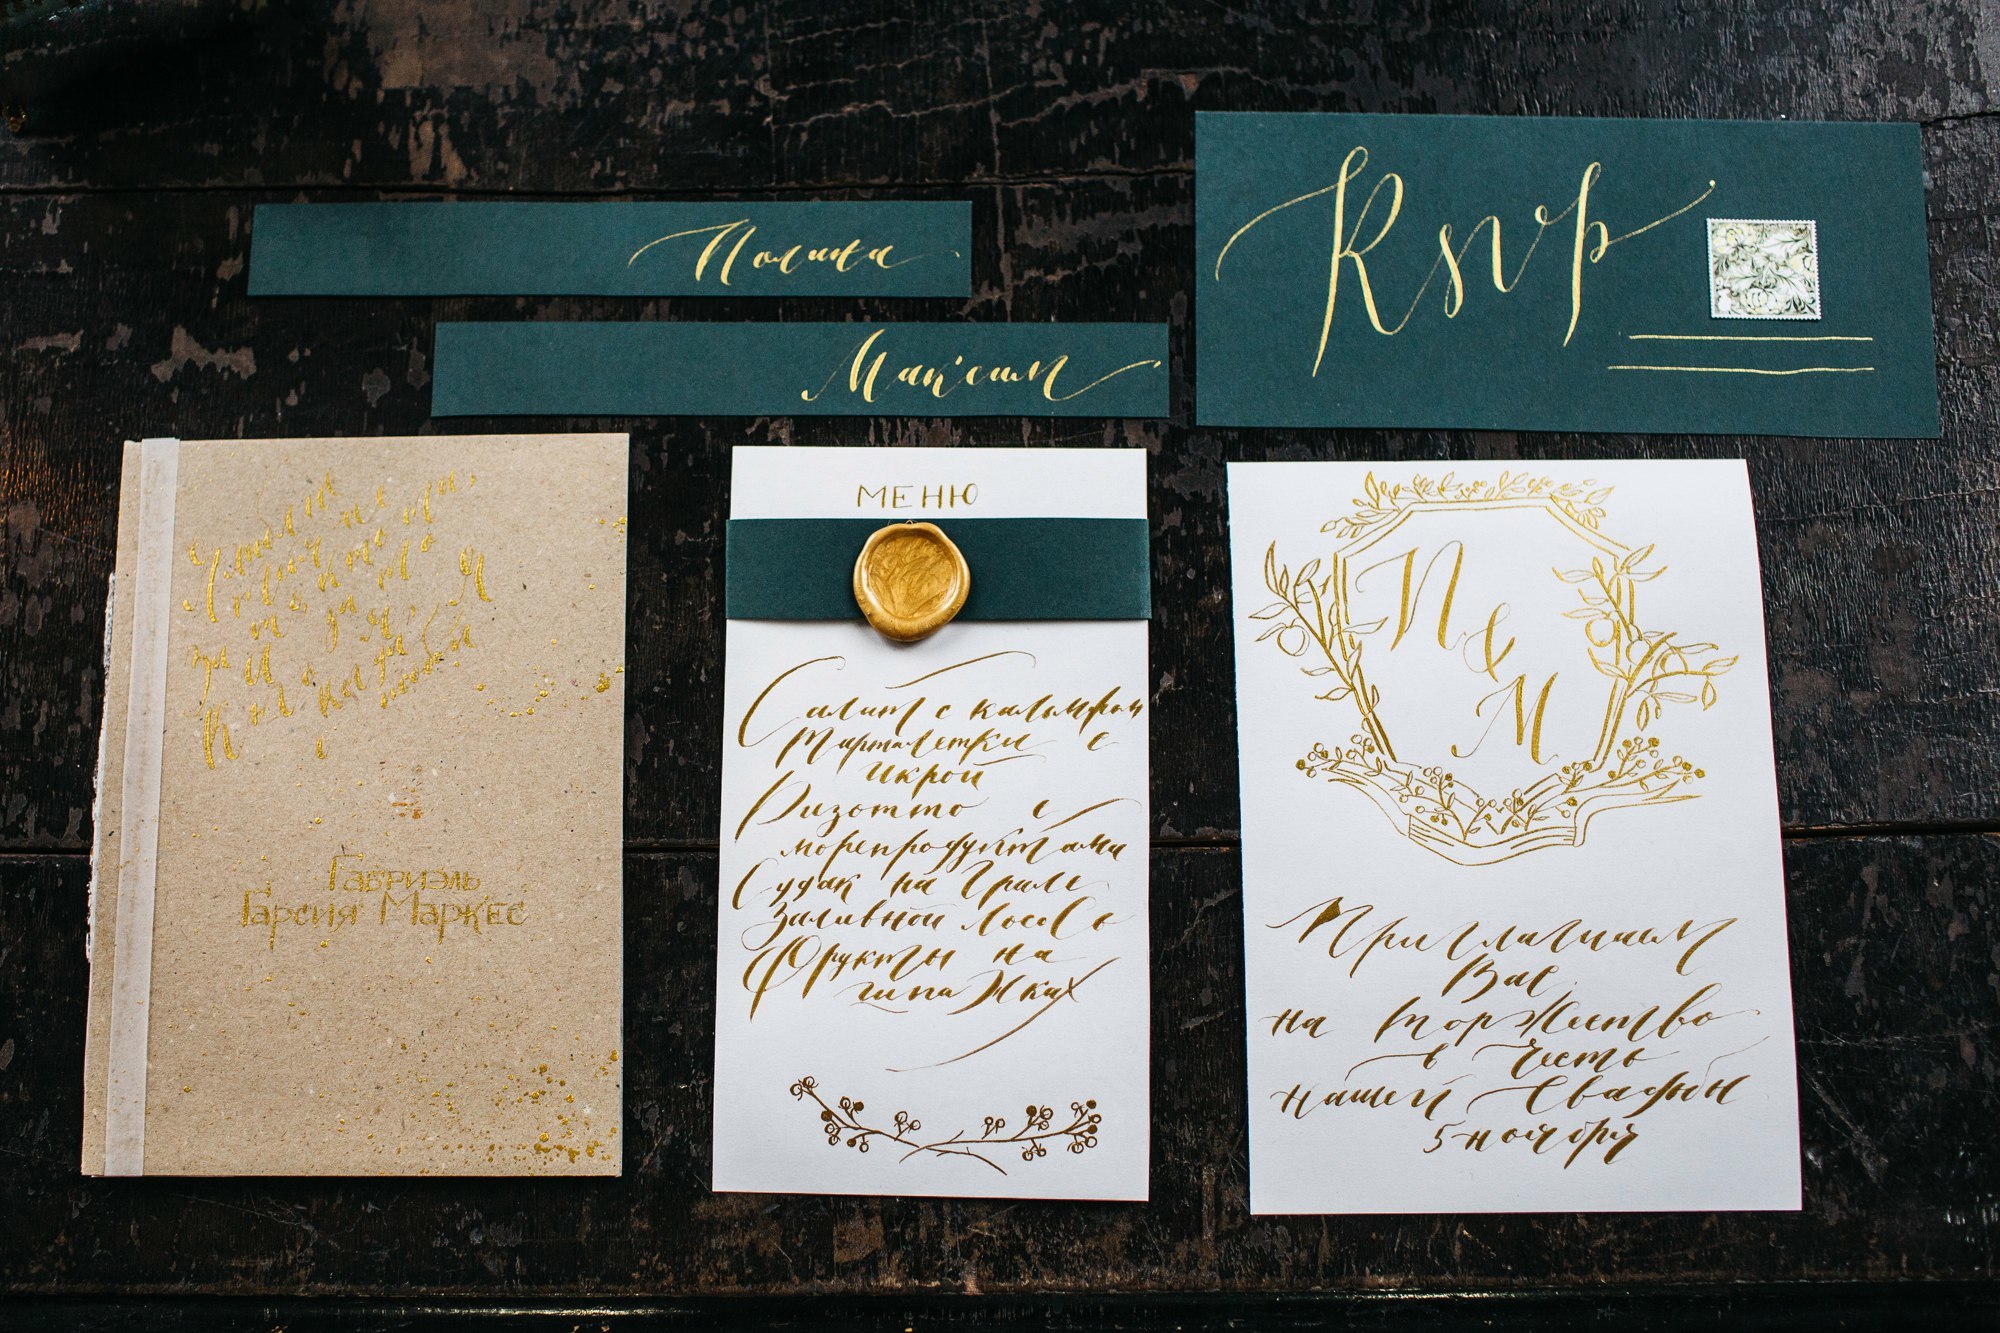 Полина
Максим
Rsvp
Габриэль
Гарсия Маркес
МЕНЮ
Салат с кальмаром
Тарталетки с
икрой
Ризотто с
морепродуктами
Судак на Гриле
Заливной Лосось
Фрукты на
шпажках
П & М
Приглашаем
Вас
на торжество
в честь
нашей Свадьбы
5 ноября